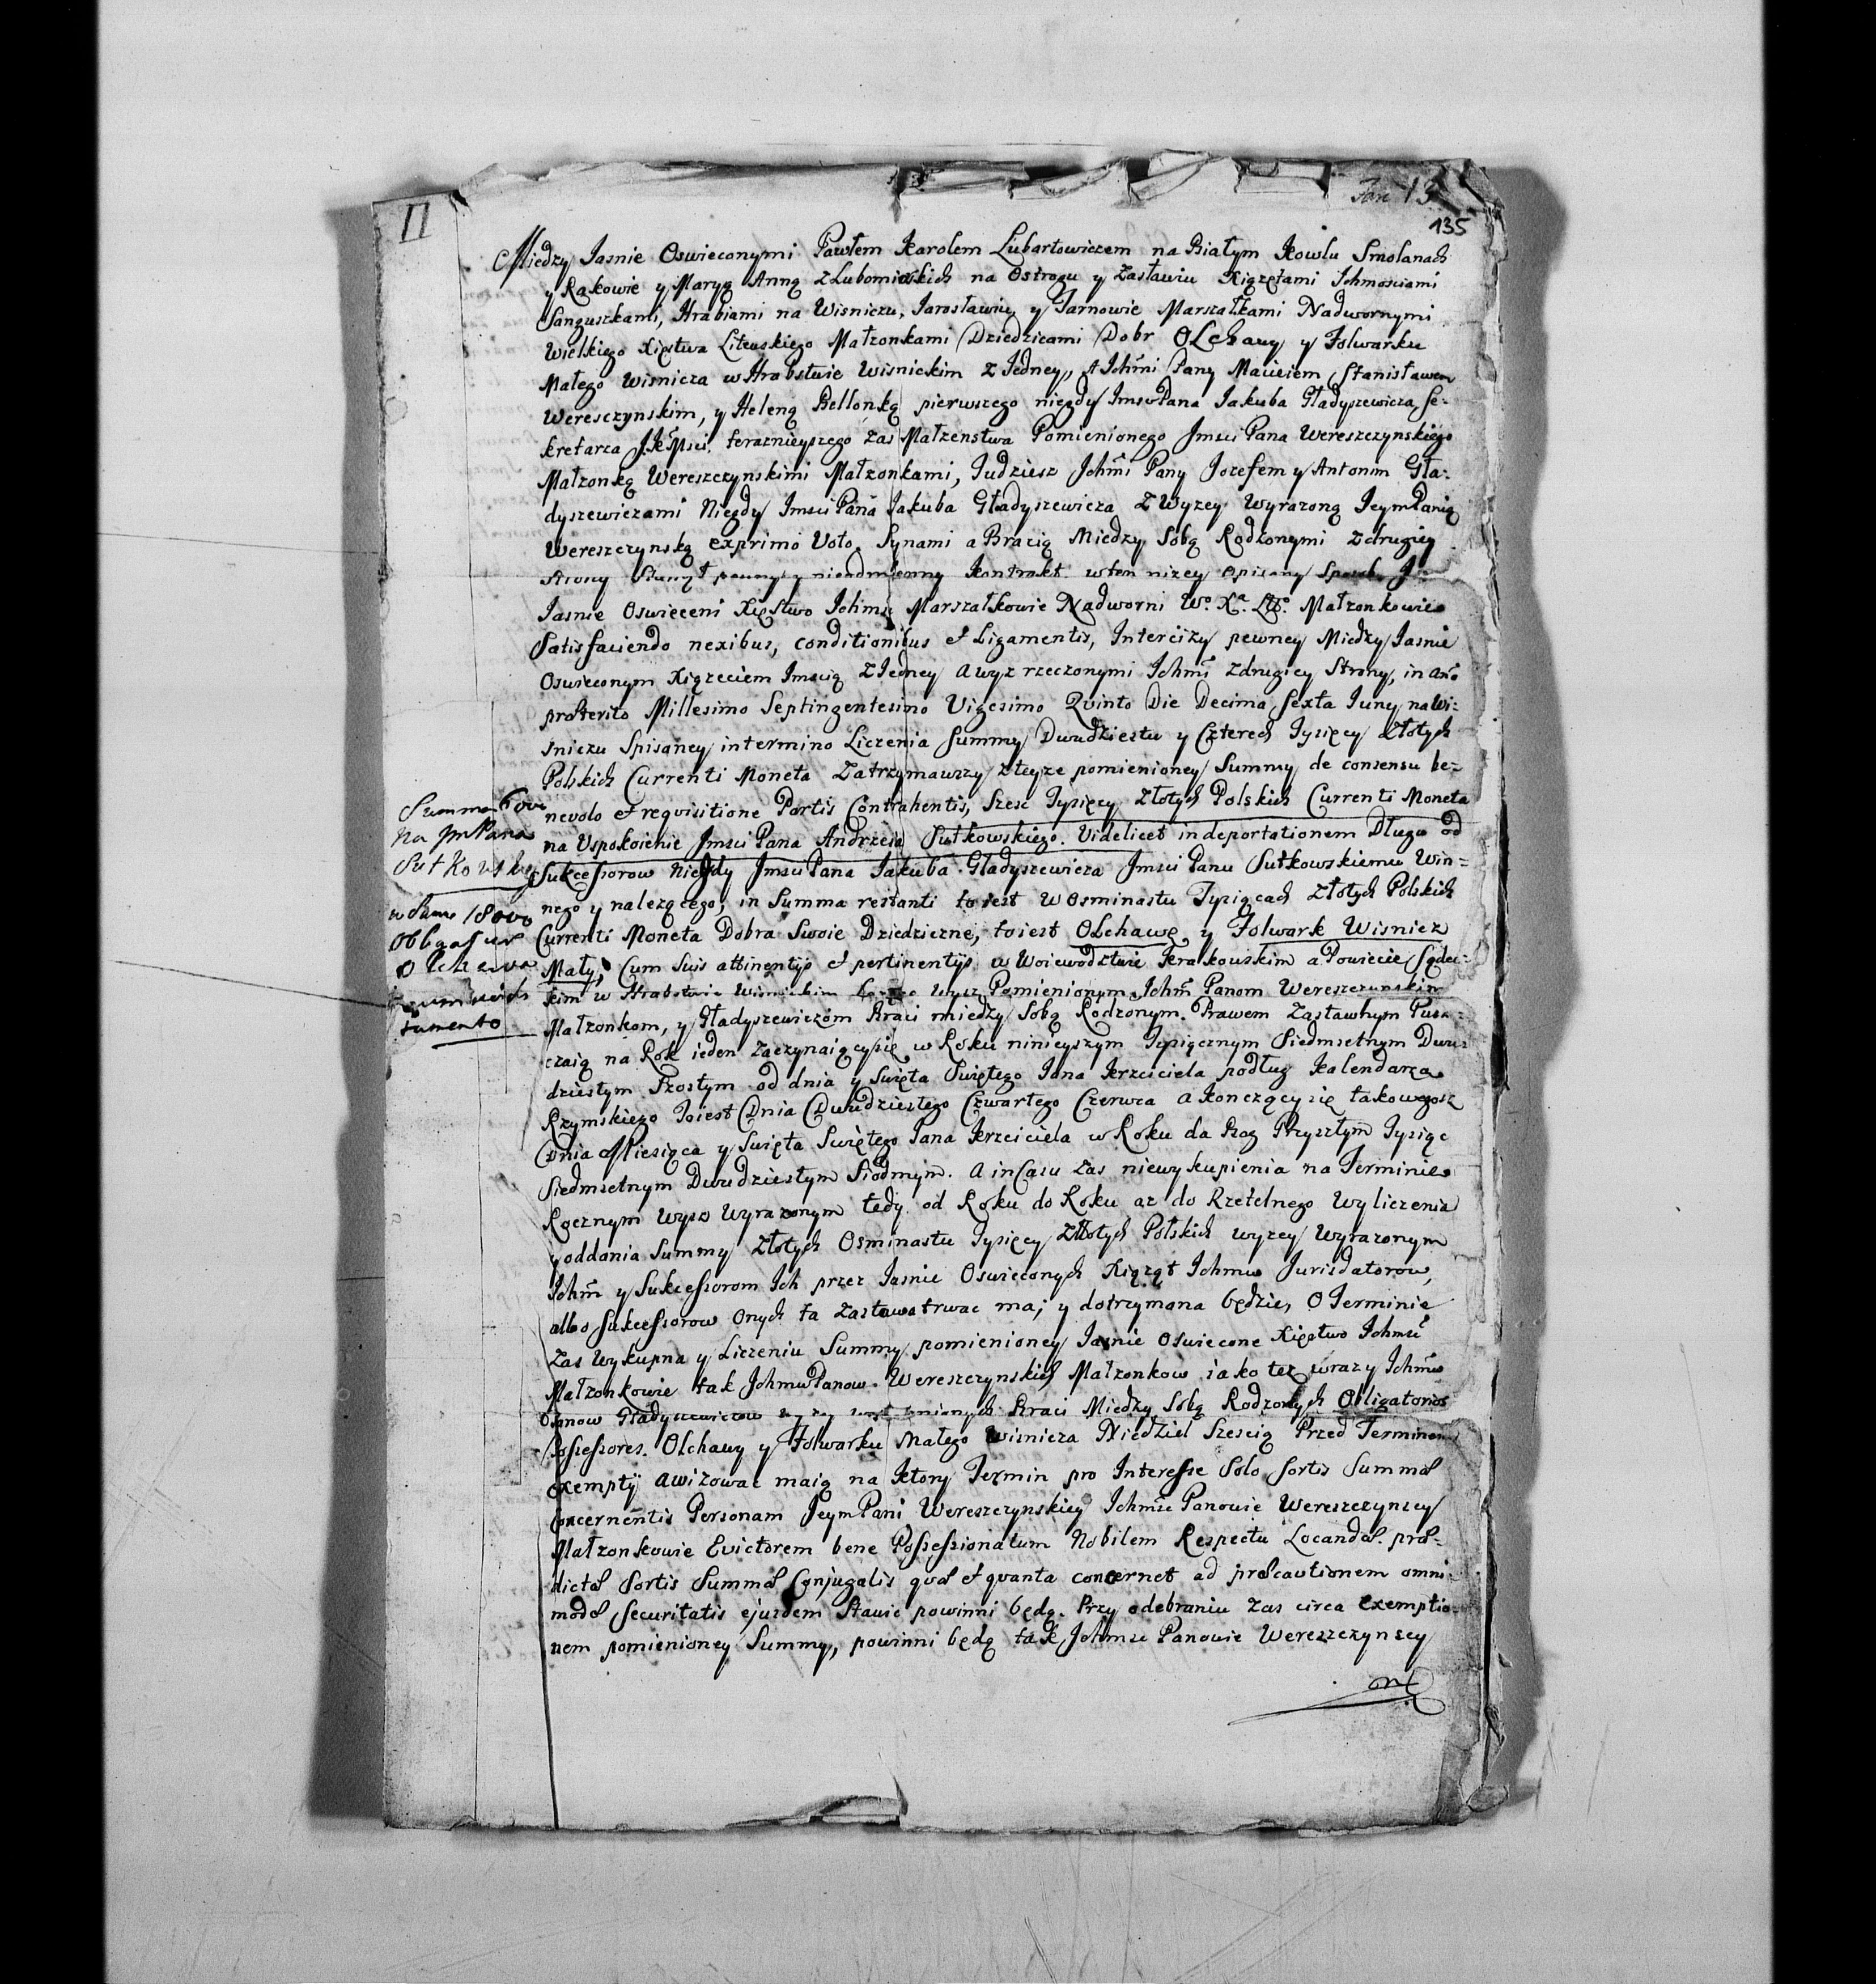 II
Fasc 13
135
Między Jasnie Oswieconymi Pawłem Karolem Lubartowiczem na Białym Kowlu Smolanach
y Rakowie y Maryą Anną z Lubomirskich na Ostrogu y Zasławiu Xiązętami Ichmosciami
Sanguszkami, Hrabiami na Wisniczu, Iarosławiu, y Tarnowie Marszałkami Nadwornymi
Wielkiego Xięstwa Litewskiego Małzonkami Dziedzicami Dobr OLchawy y Folwarku
Małego Wisnicza w Hrabstwie Wisnickim z Iedney, A Ichm̃i Pany Macieiem Stanisławem
Weresczynskim, y Heleną Bellonką pierwszego niegdy Imsci Pana Iakuba Gładyszewicza Se-
kretarza J.K.Msci. teraznieyszego zas Małzenstwa Pomienionego Imsci Pana Wereszczynskiego
Małzonką Wereszczynskimi Małzonkami, Tudziesz Ichm̃i Pany Iozefem y Antonim Gła-
dyszewiczami Niegdy Imsci Pana Iakuba Gładyszewicza z Wyzey Wyrazoną IeymPanią
Wereszczynską exprimo Voto Synami a Bracią Miedzy Sobą Rodzonymi z drugiey
strony Stanął pewny y nieodmienny Kontrakt w ten nizey opisany Sposob Iz
Iasnie Oswieceni Xięstwo Ichmsc Marszałkowie Nadworni Wo. Xa. Ltto. Małzonkowie
Satisfaciendo nexibus, conditionibus et Ligamentis, Intercizy pewney Między Iasnie
Oswieconym Xiązeciem Imscią z Iedney a wyz rzeczonymi Ichm̃ z drugiey Strony, in año
præterito Millesimo Septingentesimo Vigesimo Qvinto Die Decima Sexta Iuny na Wi-
sniczu Spisaney in termino Liczenia Summy Dwudziestu y Czterech Tysięcy złotych
Polskich Currenti Moneta Zatrzymawszy z teyze pomienioney Summy de consensu be-
nevolo et reqvisitione Partis Contrahentis, Szesc Tysięcy Złotych Polskich Currenti Moneta
na Uspokoienie Imsci Pana Andrzeia Sutkowskiego. Videlicet in deportationem Długu od
Sukcessorow Niegdy Imsci Pana Iakuba Gładyszewicza Imsci Panu Sutkowskiemu Win-
nego y nalezącego, in Summa restanti to iest w Osminastu Tysiącach złotych Polskich
Currenti Moneta Dobra Swoie Dziedziczne, to iest OLchawę y Folwark Wisnicz
Mały, Cum Suis attinentijs et pertinentijs w Woiewodztwie Krakowskim a Powiecie Sądec-
kim w Hrabstwie Wisnickim wysz Pomienionym Ichm̃ Panom Wereszczynskim
Małzonkom, y Gładyszewiczom Braci miedzy Sobą Rodzonym. Prawem Zastawnym Pusz-
czaią na Rok ieden zaczynaiący się w Roku ninieyszym Tysiącznym Siedmsetnym Dwu-
dziestym Szostym od dnia y Swięta Swiętego Iana Krzciciela podług Kalendarza
Rzymskiego To iest Dnia Dwudziestego Czwartego Czerwca a Konczący się takowegosz
Dnia Miesiąca y Swięta Swiętego Iana Krzciciela w Roku da Bog Przyszłym Tysiąc
Siedmsetnym Dwudziestym Siodmym. A in Casu zas niewykupienia na Terminie
Rocznym wysz wyrazonym tedy od Roku do Roku az do Rzetelnego Wyliczenia
y oddania Summy Złotych Osminastu Tysięcy Złotych Polskich wyzey wyrazonym
Ichm̃ y Sukcessorom Ich przez Iasnie Oswieconych Xiąząt Ichmw Iurisdatorow,
albo Sukcessorow Onych ta Zastawa trwac ma, y dotrzymana będzie, O Terminie
zas Wykupna y Liczeniu Summy pomienioney Iasnie Oswiecone Xięstwo Ichmsc
Małzonkowie tak IchmwPanow Wereszczynskich Małzonkow iako tez wrazy Ichmw
Panow Gładyszewiczow Braci Miedzy Sobą Rodzonych Obligatorios
Possessores Olchawy y Folwarku Małego Wisnicza Niedziel Szescią Przed Terminem
exemptij awizowac maią na Ktory Termin pro Interesse Solo Sortis Summæ
Concernentis Personam IeymPani Wereszczynskiey Ichmsc Panowie Wereszczynscy
Małzonkowie Evictorem bene Possessionatum Nobilem Respectu Locandæ præ-
dictæ Sortis Summæ Conjugalis qvæ et qvanta concernet ad præcautionem omni-
modæ Securitatis ejusdem Stawic powinni będą. Przy odebraniu zas circa exemptio-
nem pomienioney Summy, powinni będą tak Ichmsc Panowie Wereszczynscy
Summa 6000
na JmPana
Sutkowskieg
w Sumie 18000
Obligatur
Olchawa